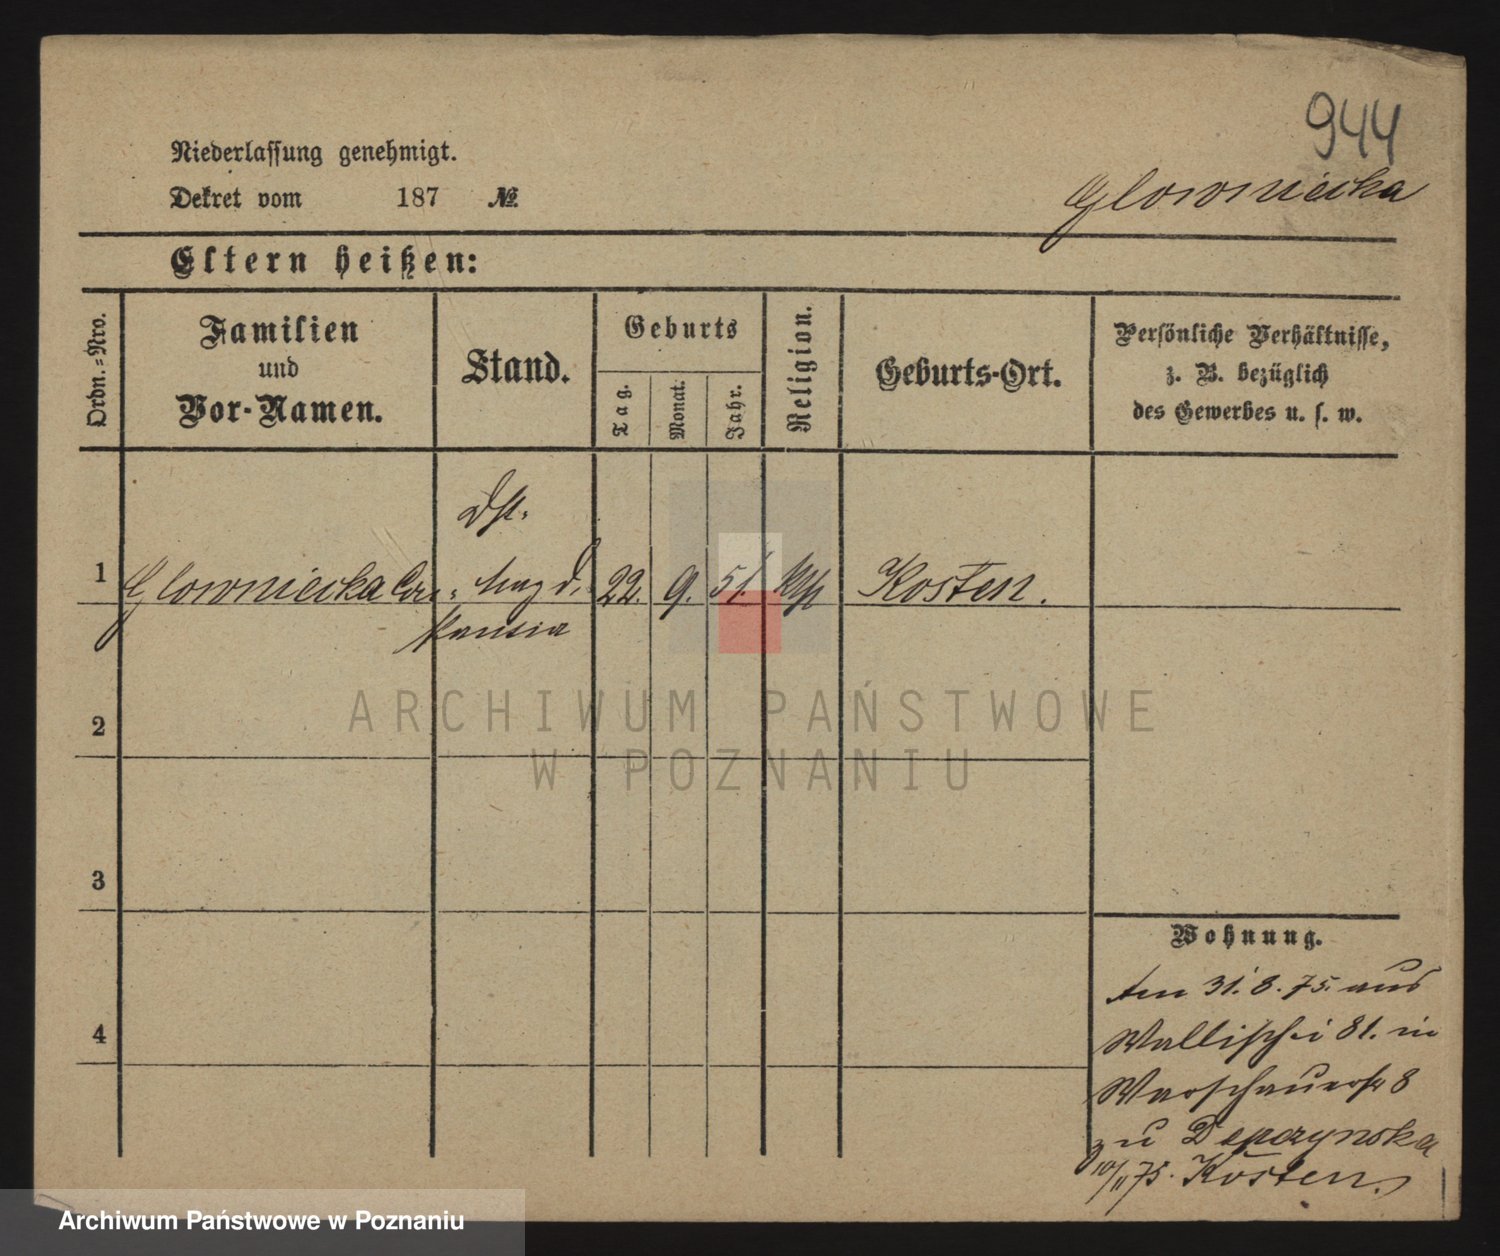 944
Niederlassung genehmigt.
Dekret vom 187 №
Glowniecka
Eltern heißen:
Ordn.-Nro.
Familien
und
Vor-Namen.
Stand.
Geburts
Tag.
Monat.
Jahr.
Religion.
Geburts-Ort.
Persönliche Verhältnisse,
z. B. bezüglich
des Gewerbes u. s. w.
Dst.
1 Glowniecka Con- Magd. 22. 9. 51. Kth Kosten.
stansia
2
3
4
Wohnung.
Am 31. 8. 75. aus
Wallischei 81. in
Warschauerstr 8
zu Depczynska
10/11 75. Kosten.
ARCHIWUM PAŃSTWOWE
W POZNANIU
Archiwum Państwowe w Poznaniu